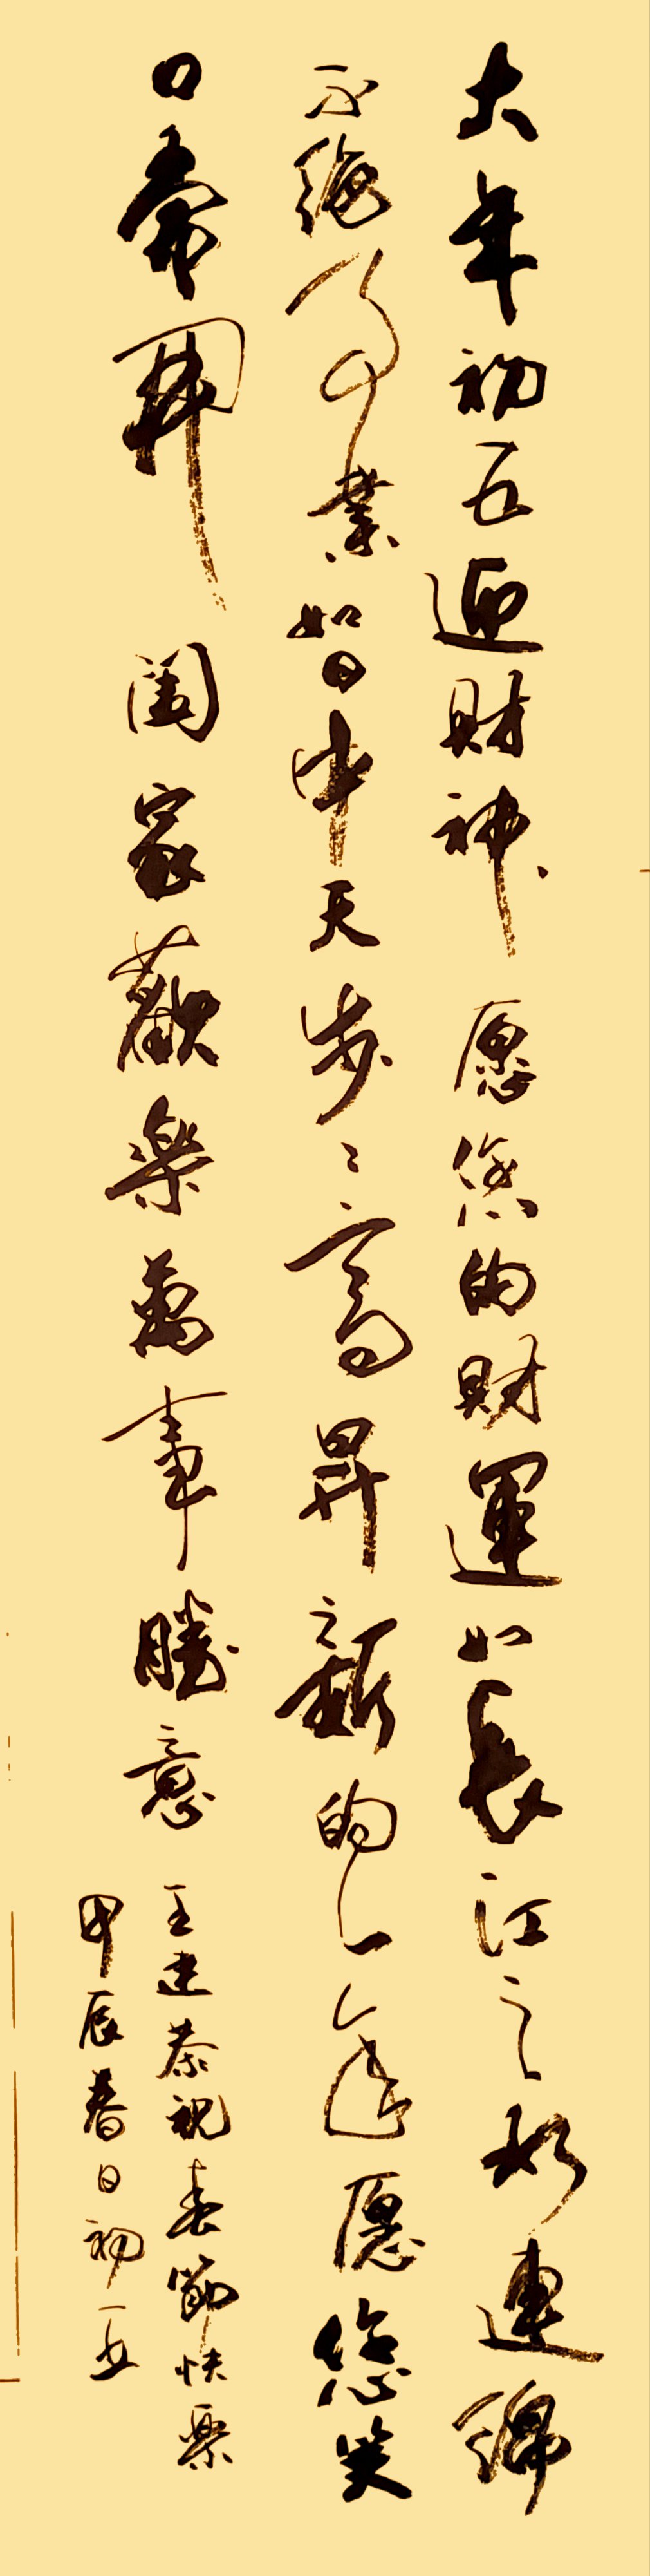 大年初五迎财神愿您的财運如長江之水連綿
不绝事業如日中天步步高昇新的一年愿您笑
口常開闔家歡樂萬事勝意
王建恭祝春節快樂
甲辰春日初五